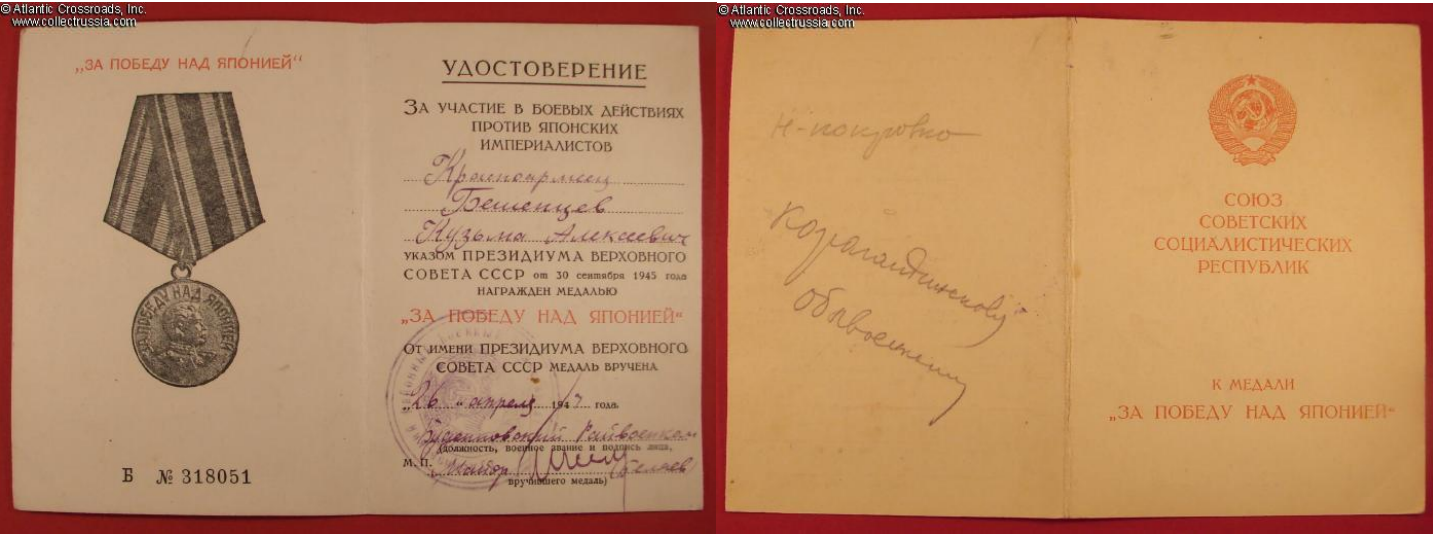 © Atlantic Crossroads, Inc.
www.collectrussia.com
„ЗА ПОБЕДУ НАД ЯПОНИЕЙ“
ЗА ПОБЕДУ НАД ЯПОНИЕЙ
Б № 318051
УДОСТОВЕРЕНИЕ
ЗА УЧАСТИЕ В БОЕВЫХ ДЕЙСТВИЯХ
ПРОТИВ ЯПОНСКИХ
ИМПЕРИАЛИСТОВ
Красноармеец
Кузьма Алексеевич
УКАЗОМ ПРЕЗИДИУМА ВЕРХОВНОГО
СОВЕТА СССР от 30 сентября 1945 года
НАГРАЖДЕН МЕДАЛЬЮ
„ЗА ПОБЕДУ НАД ЯПОНИЕЙ“
ОТ ИМЕНИ ПРЕЗИДИУМА ВЕРХОВНОГО
СОВЕТА СССР МЕДАЛЬ ВРУЧЕНА
„26“ апреля 1947 года
Райвоенком
(должность, военное звание и подпись лица,
М. П. Майор Беляев
вручившего медаль)
© Atlantic Crossroads, Inc.
www.collectrussia.com
Н-покровко
Карагандинскому
Облвоенкому
СОЮЗ
СОВЕТСКИХ
СОЦИАЛИСТИЧЕСКИХ
РЕСПУБЛИК
К МЕДАЛИ
„ЗА ПОБЕДУ НАД ЯПОНИЕЙ“